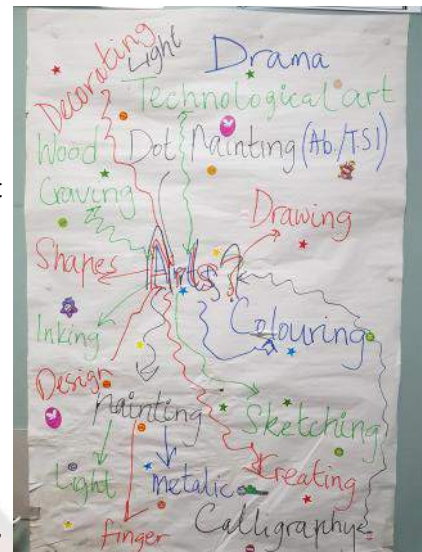 Decorating
Light
Drama
Technological art
Wood
Craving
Dot Painting (Ab./T.S.I)
Drawing
Shapes
Arts?
Inking
Colouring
Design
Painting
Sketching
Light
metalic
finger
Creating
Calligraphy